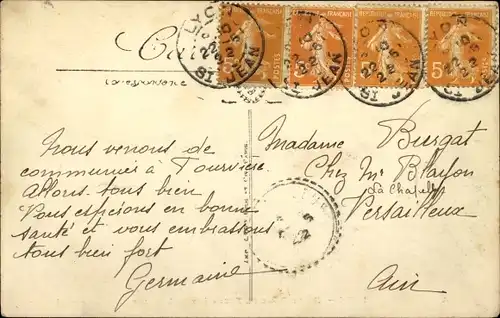 Correspondance
Nous venons de
communier à Fourvière
Allons tous bien
Vous espérions en bonne
santé et vous embrassons
tous bien fort
Germaine
Madame Burgat
Chez Mr
La Chapelle
Versailleux
Ain
LYON
ST JEAN
FRANÇAISE
POSTES
5